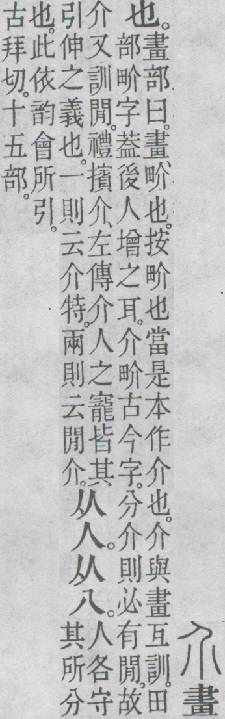 介畫
也。
畫部曰。畫、畍也。按畍也當是本作介也。介與畫互訓。田
部畍字葢後人增之耳。介畍古今字。分介則必有閒。故
介又訓閒。禮擯介、左傳介人之寵皆其
引伸之義也。一則云介特。兩則云閒介。
从人。从八。
人各守
其所分
也。此依韵會所引。
古拜切。十五部。